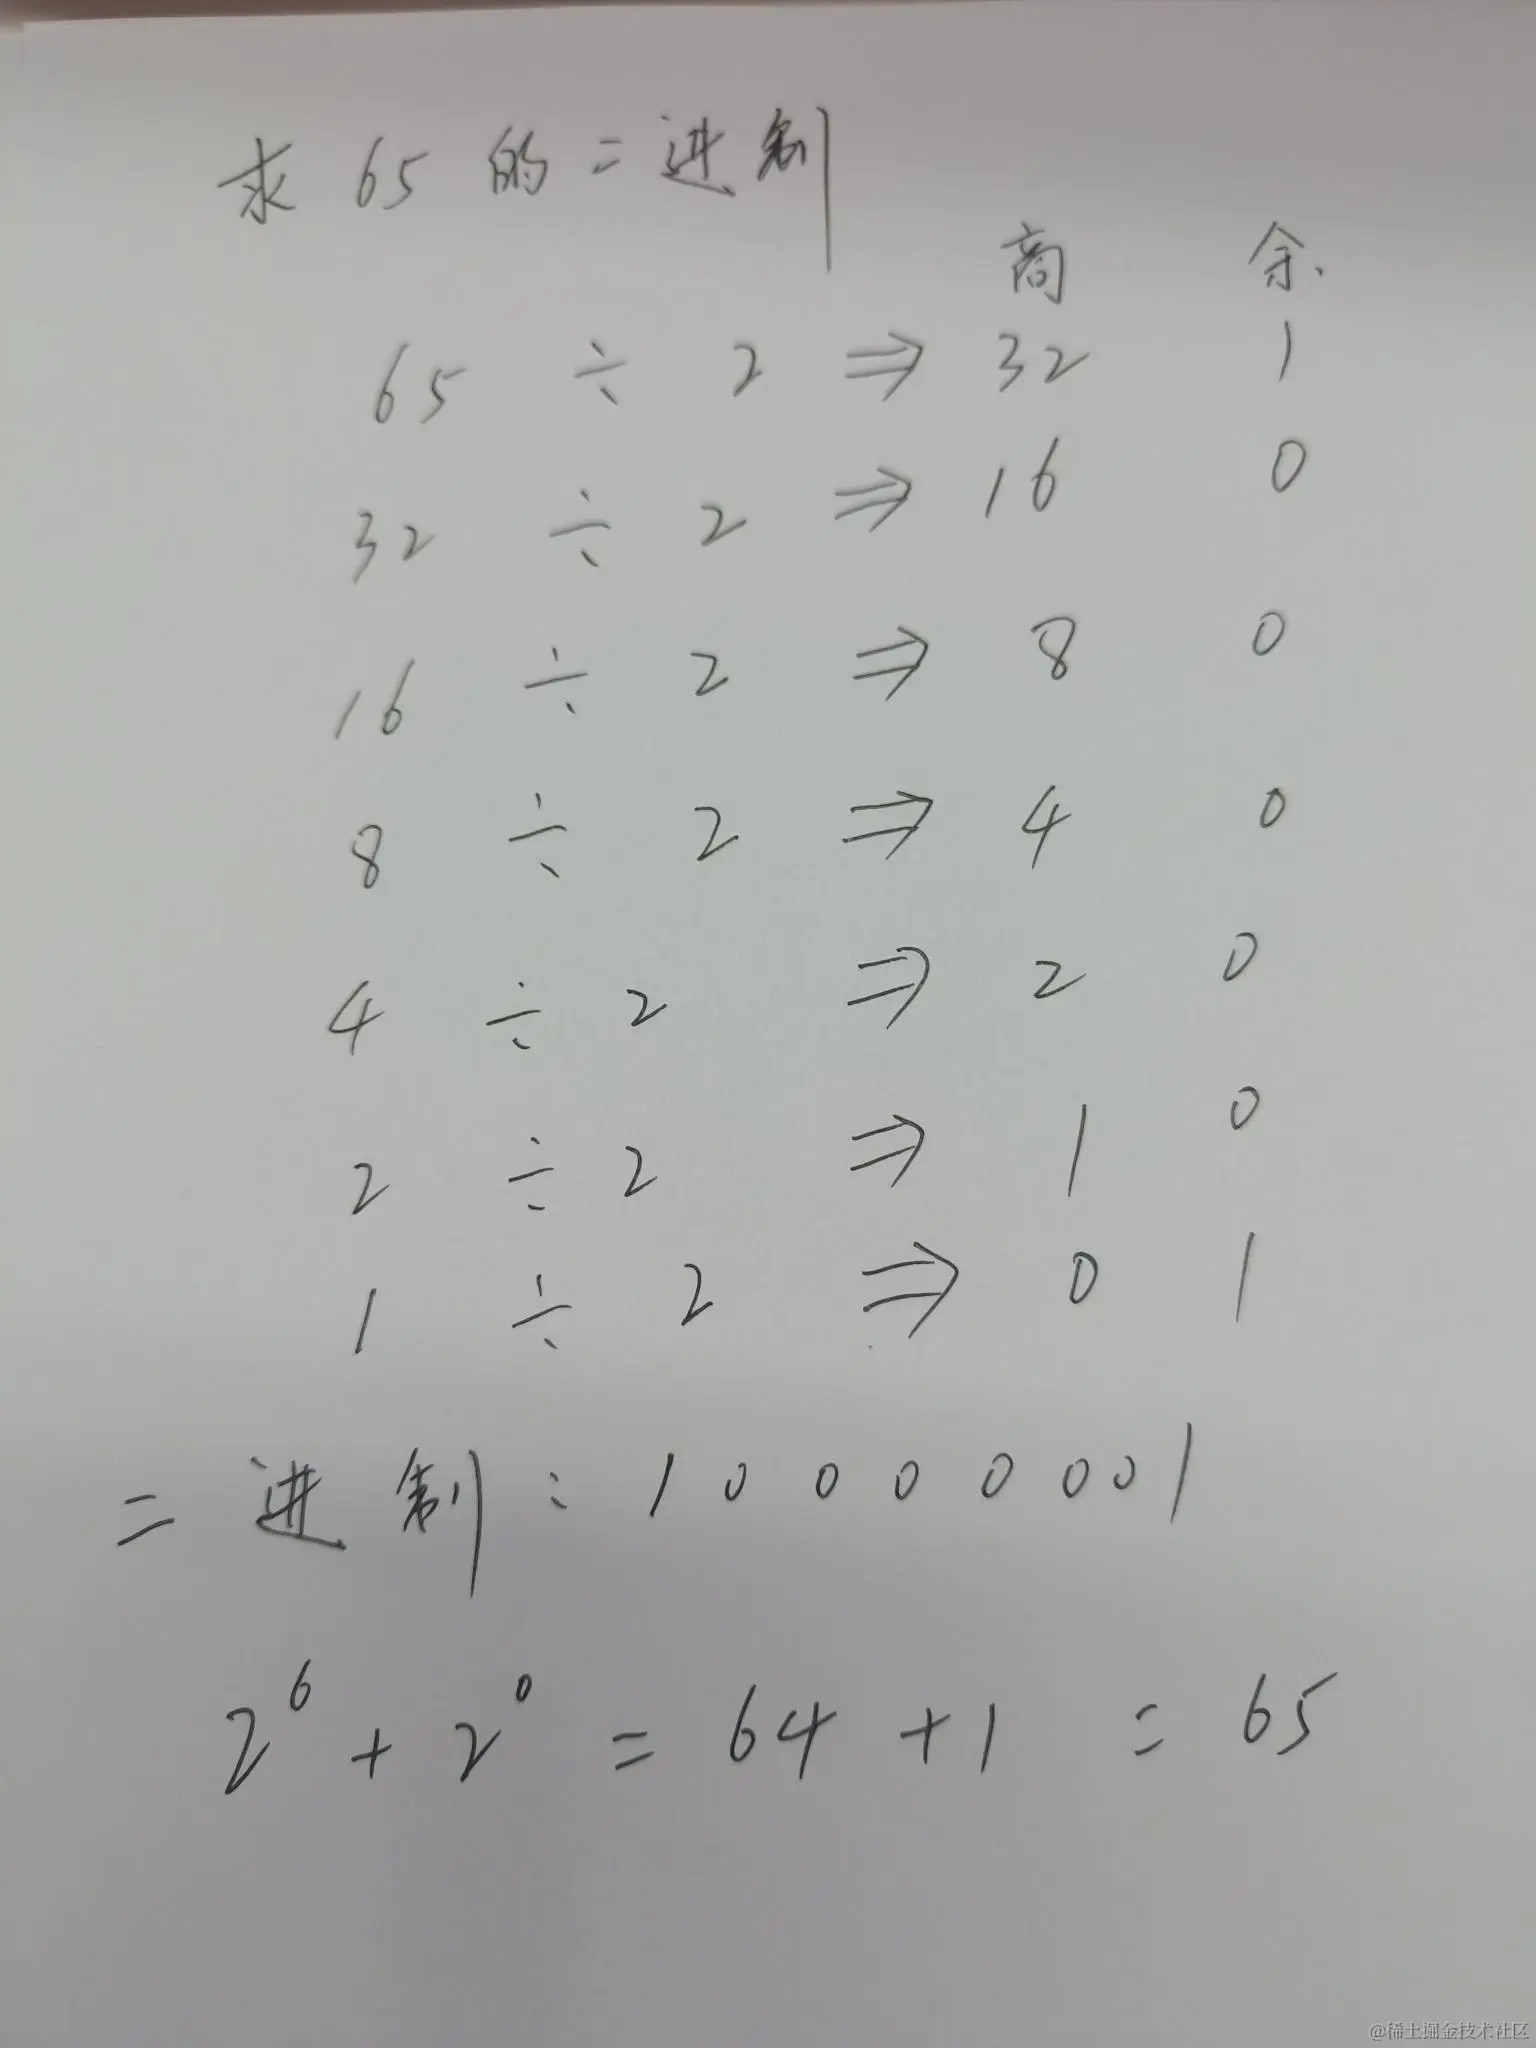 求 65 的二进制
商 余
65 ÷ 2 ⇒ 32 1
32 ÷ 2 ⇒ 16 0
16 ÷ 2 ⇒ 8 0
8 ÷ 2 ⇒ 4 0
4 ÷ 2 ⇒ 2 0
2 ÷ 2 ⇒ 1 0
1 ÷ 2 ⇒ 0 1
二进制: 1 0 0 0 0 0 0 1
2⁶ + 2⁰ = 64 + 1 = 65
@稀土掘金技术社区